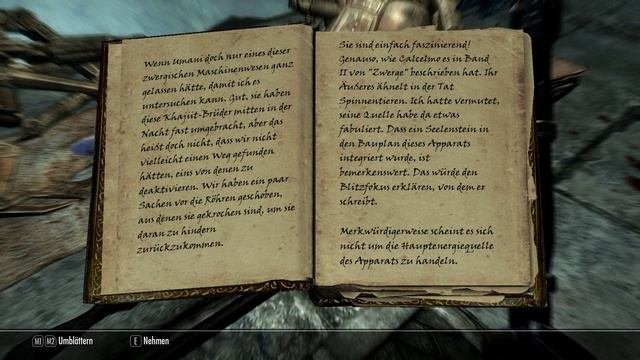 Wenn Umani doch nur eines dieser
zwergischen Maschinenwesen ganz
gelassen hätte, damit ich es
untersuchen kann. Gut, sie haben
diese Khajiit-Brüder mitten in der
Nacht fast umgebracht, aber das
heißt doch nicht, dass wir nicht
vielleicht einen Weg gefunden
hätten, eins von denen zu
deaktivieren. Wir haben ein paar
Sachen vor die Röhren geschoben,
aus denen sie gekrochen sind, um sie
daran zu hindern
zurückzukommen.
Sie sind einfach faszinierend!
Genauso, wie Calcelmo es in Band
II von "Zwerge" beschrieben hat. Ihr
Äußeres ähnelt in der Tat
Spinnentieren. Ich hatte vermutet,
seine Quelle habe da etwas
fabuliert. Dass ein Seelenstein in
den Bauplan dieses Apparats
integriert wurde, ist
bemerkenswert. Das würde den
Blitzfokus erklären, von dem er
schreibt.
Merkwürdigerweise scheint es sich
nicht um die Hauptenergiequelle
des Apparats zu handeln.
M1 M2 Umblättern E Nehmen